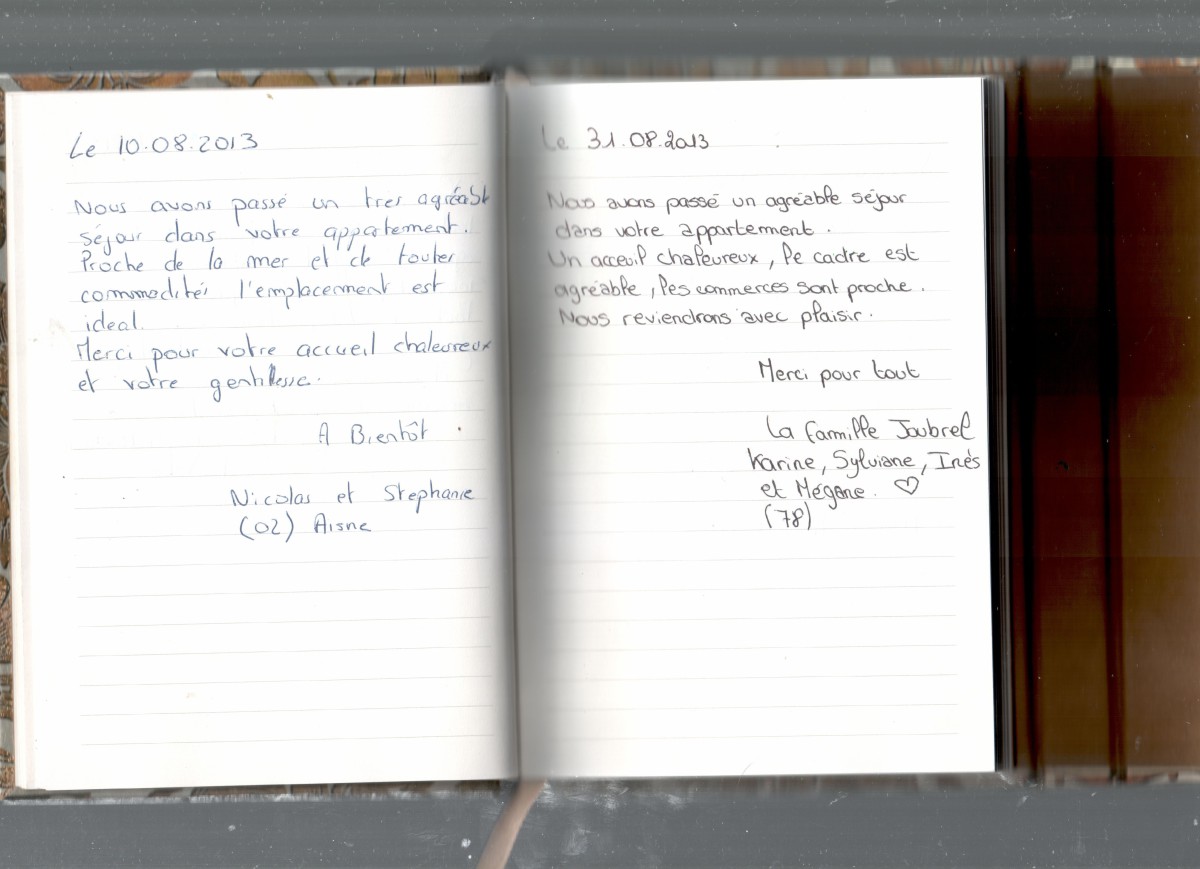 Le 10.08.2013
Nous avons passé un tres agréabl
séjour dans votre appartement.
Proche de la mer et de toutes
commodités l'emplacement est
ideal.
Merci pour votre accueil chaleureux
et votre gentillesse.
A Bientôt
Nicolas et Stephanie
(02) Aisne
Le 31.08.2013
Nous avons passé un agréable séjour
dans votre appartement.
Un acceuil chaleureux, le cadre est
agréable, les commerces sont proche.
Nous reviendrons avec plaisir.
Merci pour tout
La famille Joubrel
Karine, Sylviane, Inés
et Mégane. ♡
(78)